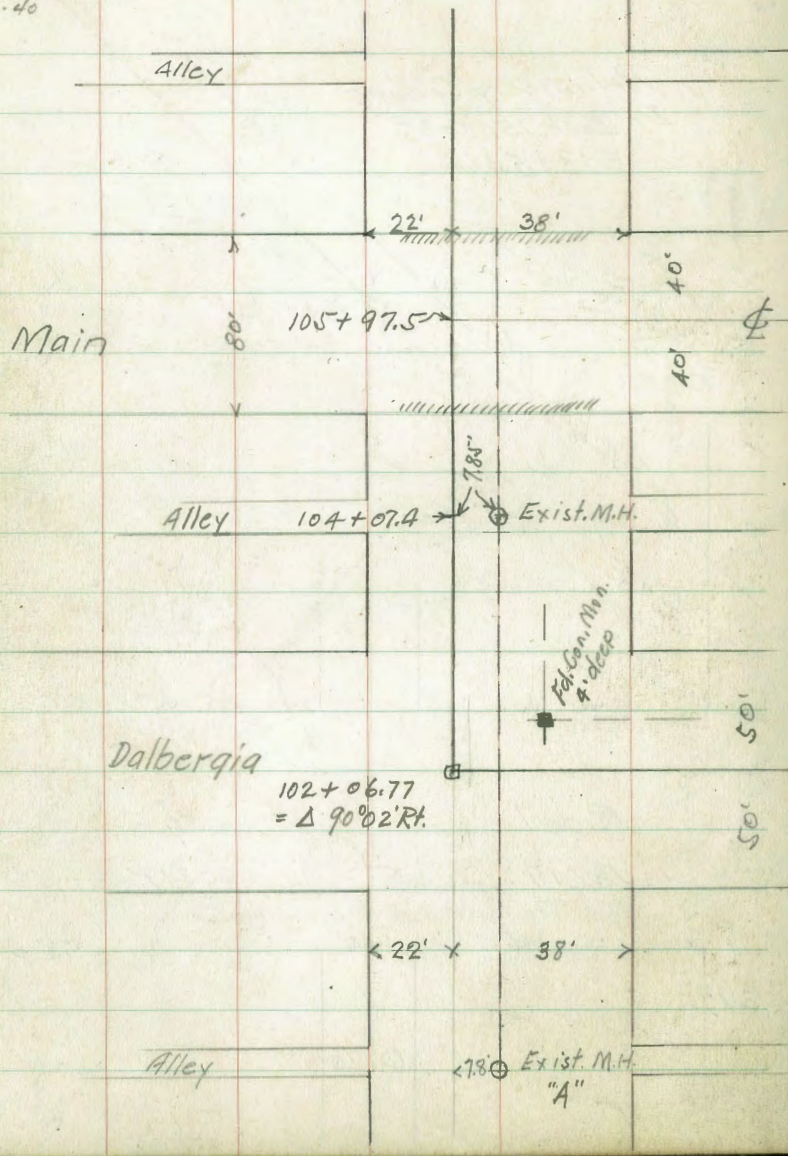 .40
Alley
22' 38'
40'
105+97.5
Main
80'
℄
40'
7.85'
Alley 104+07.4 Exist. M.H.
Fd. Con. Mon.
4' deep
50'
Dalbergia
102+06.77
= Δ 90°02' Rt.
50'
22' 38'
Alley 7.8' Exist. M.H.
"A"